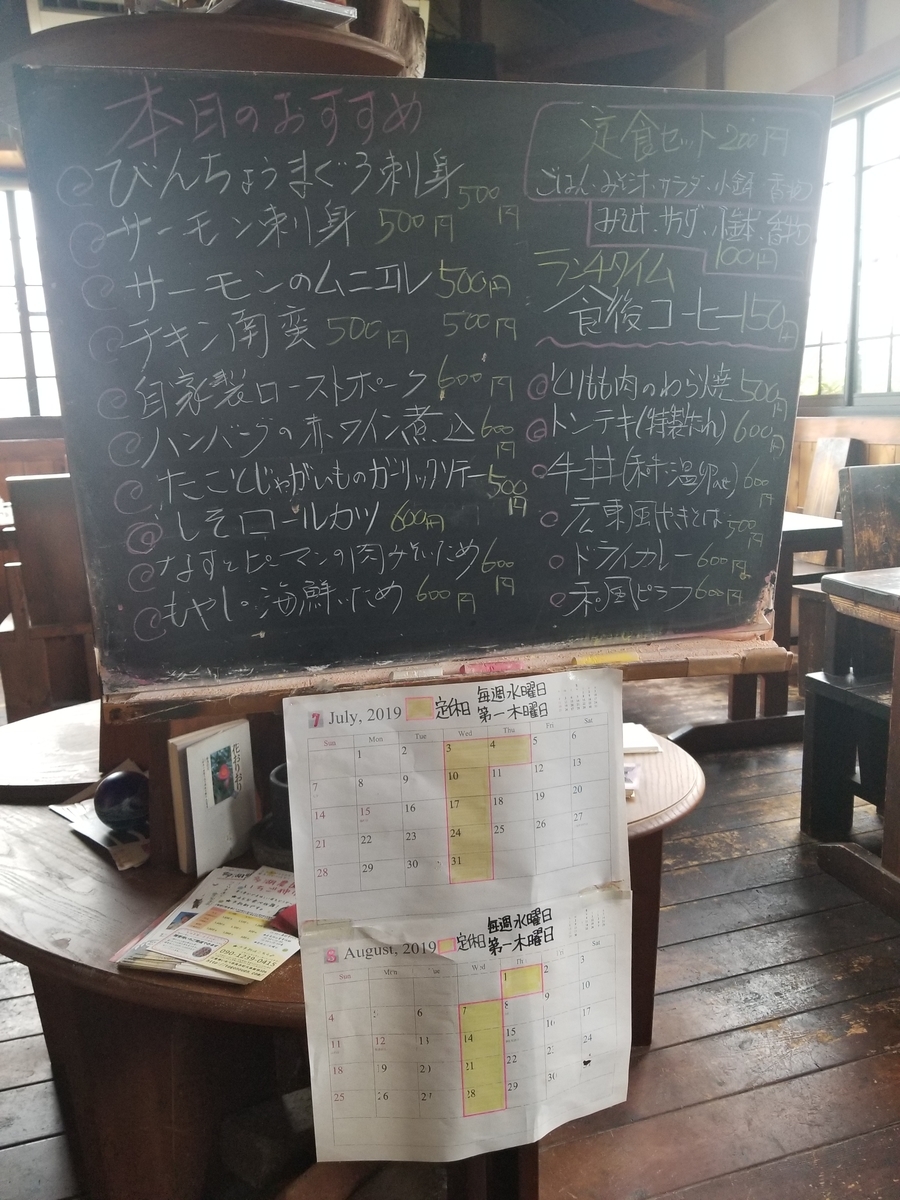 本日のおすすめ
びんちょうまぐろ刺身 500円
サーモン刺身 500円
サーモンのムニエル 500円
チキン南蛮 500円 500円
自家製ローストポーク 600円
ハンバーグの赤ワイン煮込 600円
たことじゃがいものガーリックソテー 500円
しそロールカツ 600円
なすとピーマンの肉みそいため 600円
もやしの海鮮いため 600円
定食セット 200円
ごはん、みそ汁、サラダ、小鉢、香物
みそ汁、サラダ、小鉢、香物
100円
ランチタイム
食後コーヒー150円
とりもも肉のわら焼 500円
トンテキ(特製だれ) 600円
牛丼(和牛、温卵のせ) 600円
広東風やきそば 500円
ドライカレー 600円
和風ピラフ 600円
7 July, 2019 定休日 毎週水曜日
第一木曜日
Sun Mon Tue Wed Thu Fri Sat
1 2 3 4 5 6
7 8 9 10 11 12 13
14 15 16 17 18 19 20
21 22 23 24 25 26 27
28 29 30 31
8 August, 2019 定休日 毎週水曜日
第一木曜日
Sun Mon Tue Wed Th Fri Sat
1 2 3
4 5 6 7 8 9 10
11 12 13 14 15 16 17
18 19 20 21 22 23 24
25 26 27 28 29 30
花おりおり
090-1239-0415